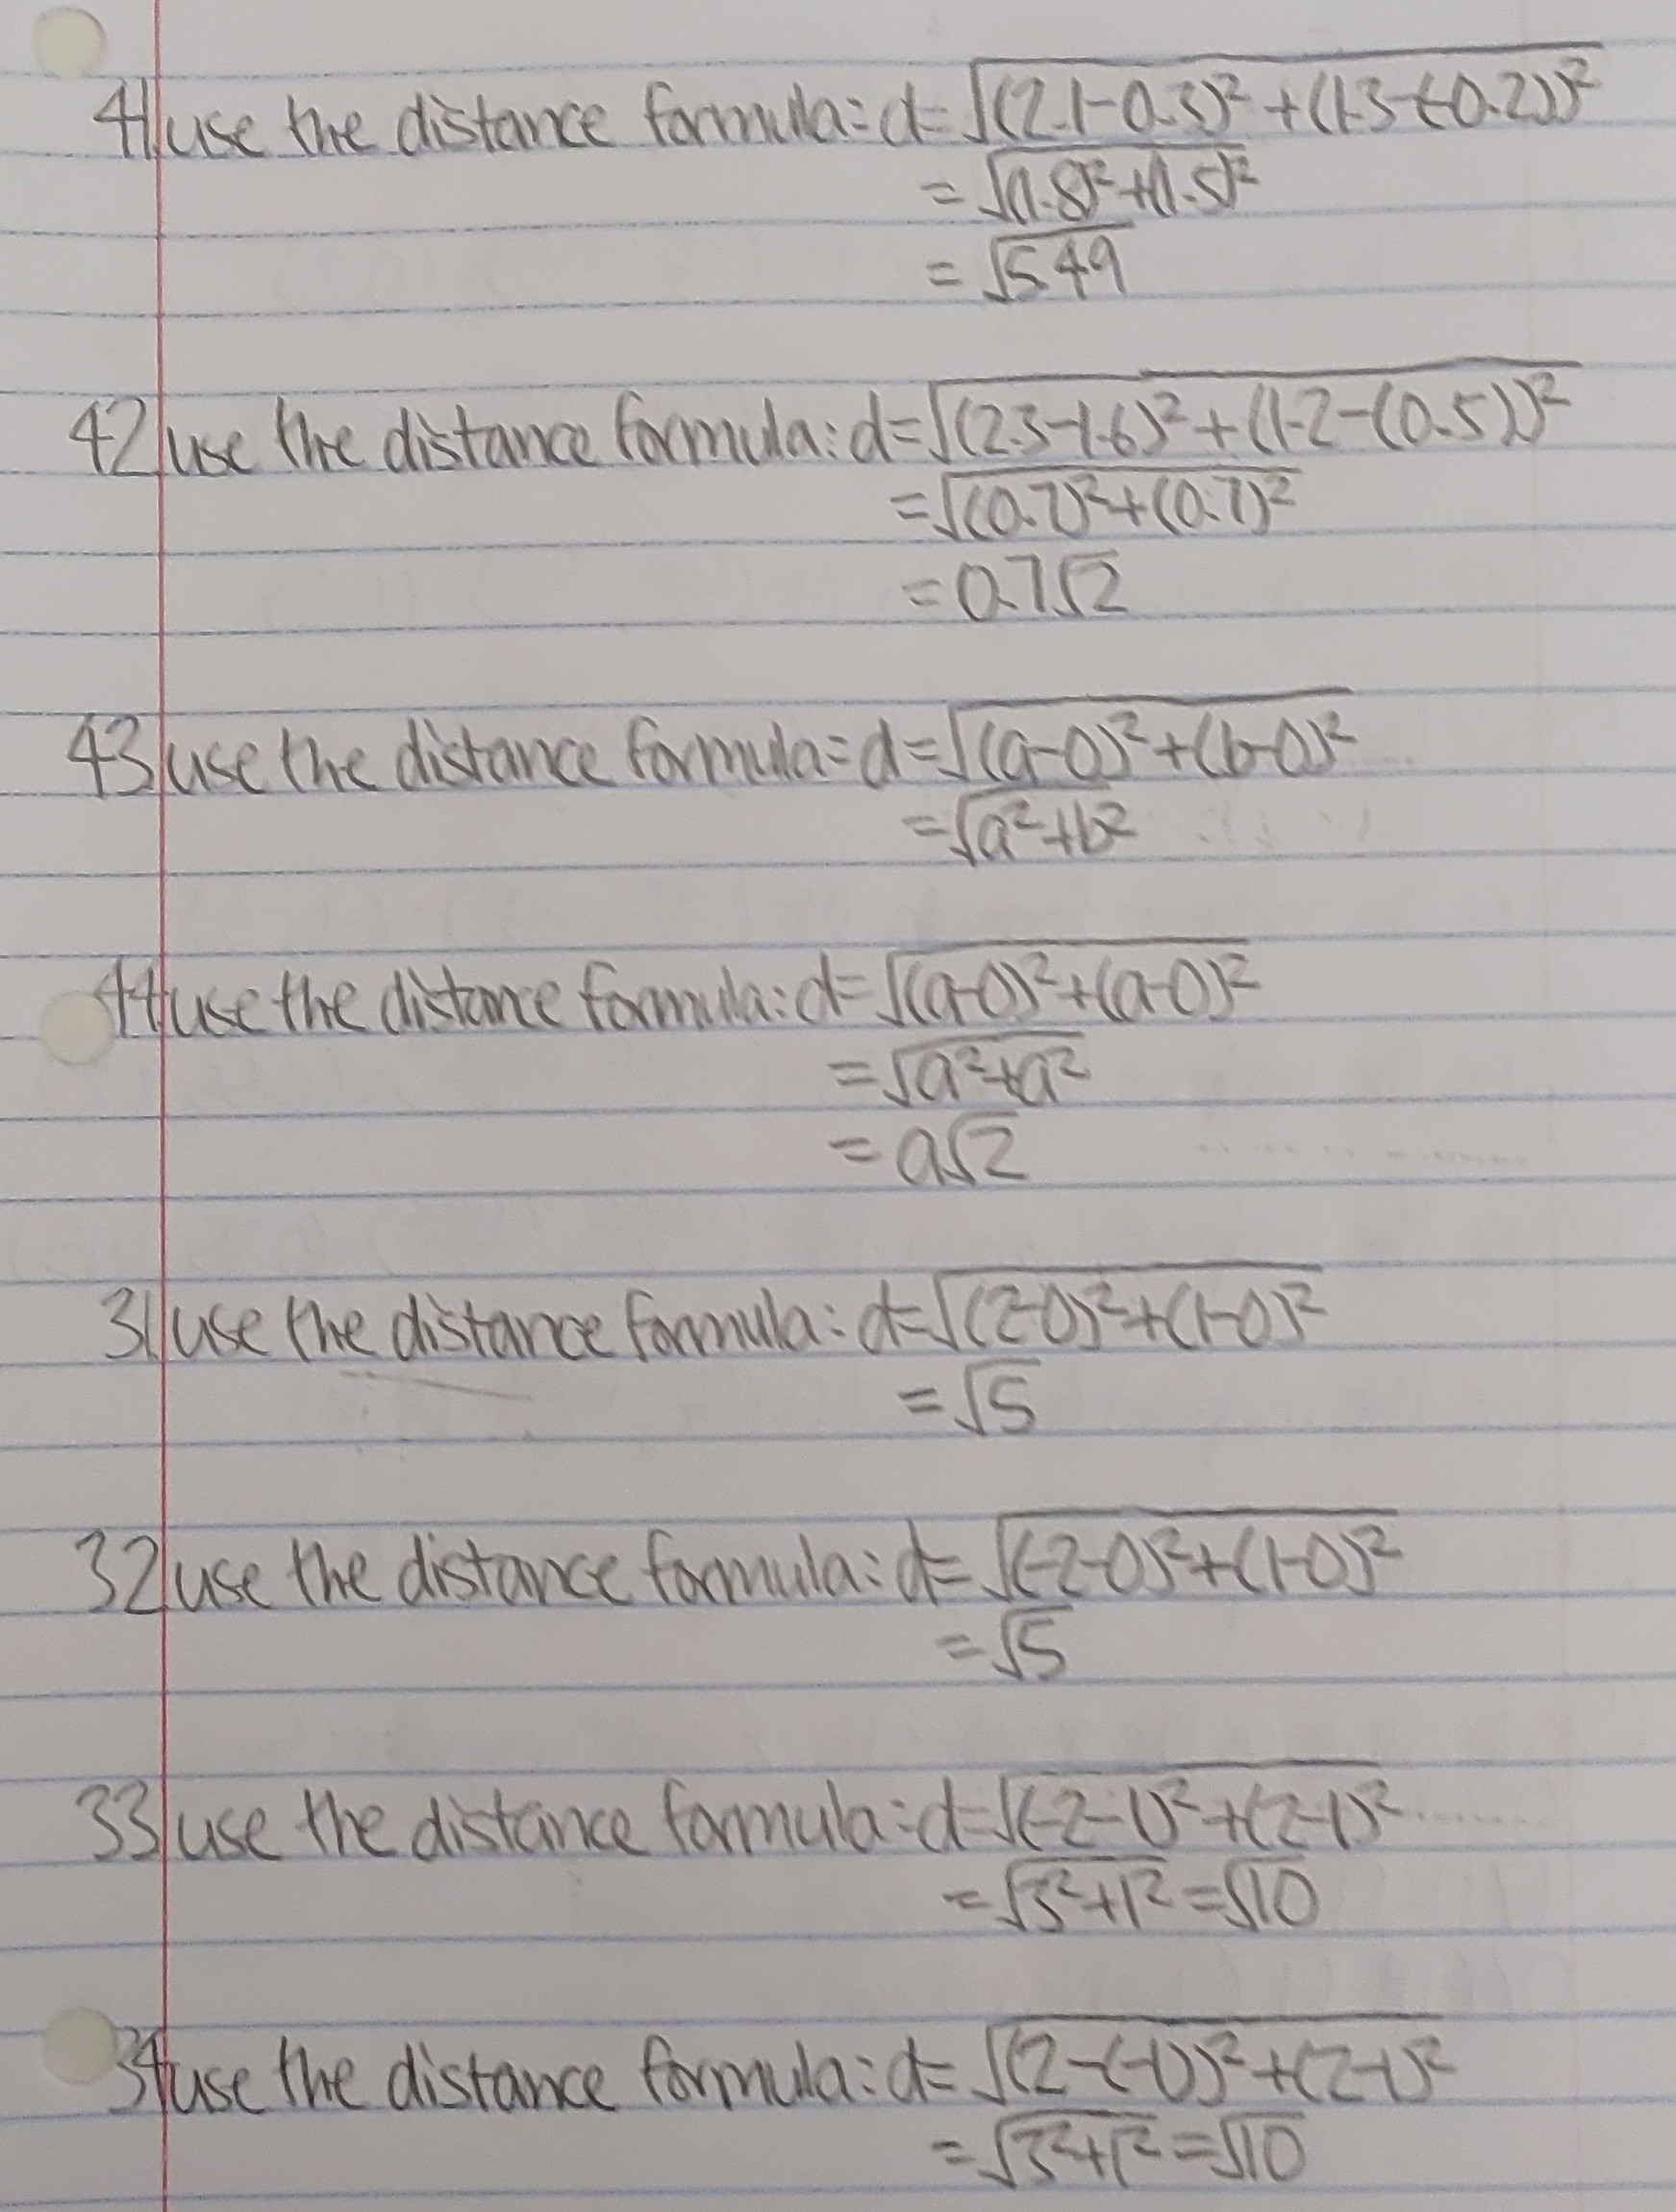 41 use the distance formula: d=√(2.1-0.3)²+(1.3-(-0.2))²
=√(1.8)²+(1.5)²
=√5.49
42 use the distance formula: d=√(2.3-1.6)²+(1.2-(0.5))²
=√(0.7)²+(0.7)²
=0.7√2
43 use the distance formula: d=√(a-0)²+(b-0)²
=√a²+b²
44 use the distance formula: d=√(a-0)²+(a-0)²
=√a²+a²
=a√2
31 use the distance formula: d=√(2-0)²+(1-0)²
=√5
32 use the distance formula: d=√(-2-0)²+(1-0)²
=√5
33 use the distance formula: d=√(-2-1)²+(2-1)²
=√3²+1²=√10
34 use the distance formula: d=√(2-(-1))²+(2-1)²
=√3²+1²=√10